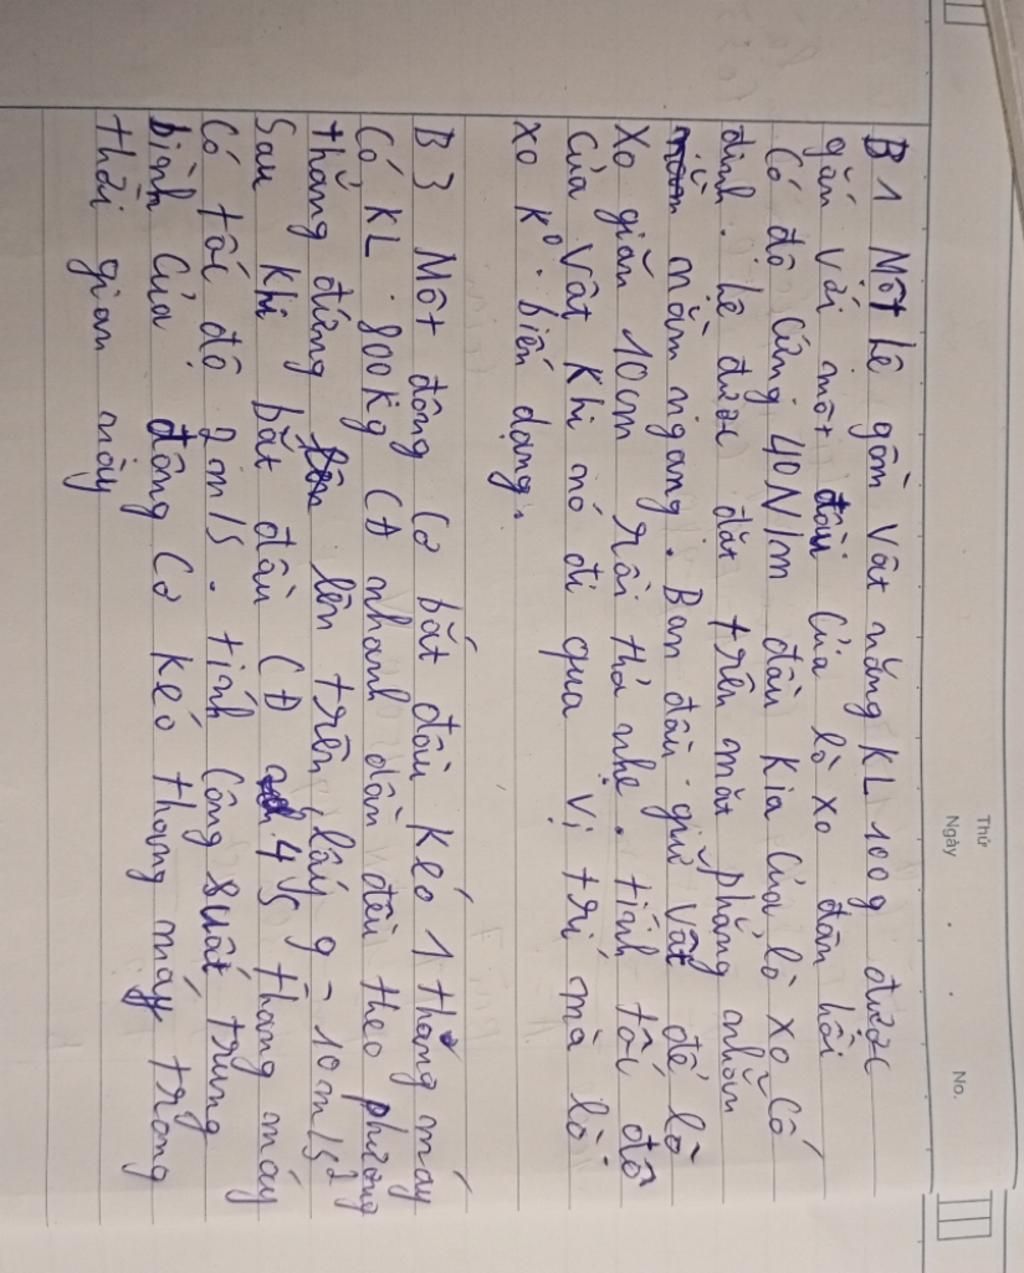 Thứ
Ngày
No.
B1 Một hệ gồm vật nặng KL 100g được
gắn với một đầu của lò xo đàn hồi
Có độ cứng 40N/m đầu kia của lò xo cố
định. hệ được đặt trên mặt phẳng nhẵn
nằm ngang. Ban đầu giữ vật để lò
xo giãn 10cm rồi thả nhẹ. tính tốc độ
của vật khi nó đi qua vị trí mà lò
xo K⁰. biến dạng.
B3 Một động cơ bắt đầu kéo 1 thang máy
Có KL. 800kg CĐ nhanh dần đều theo phương
thẳng đứng lên trên, lấy g = 10m/s²
Sau khi bắt đầu CĐ 4s thang máy
Có tốc độ 2m/s. tính Công suất trung
bình của động Cơ kéo thang máy trong
thời gian này